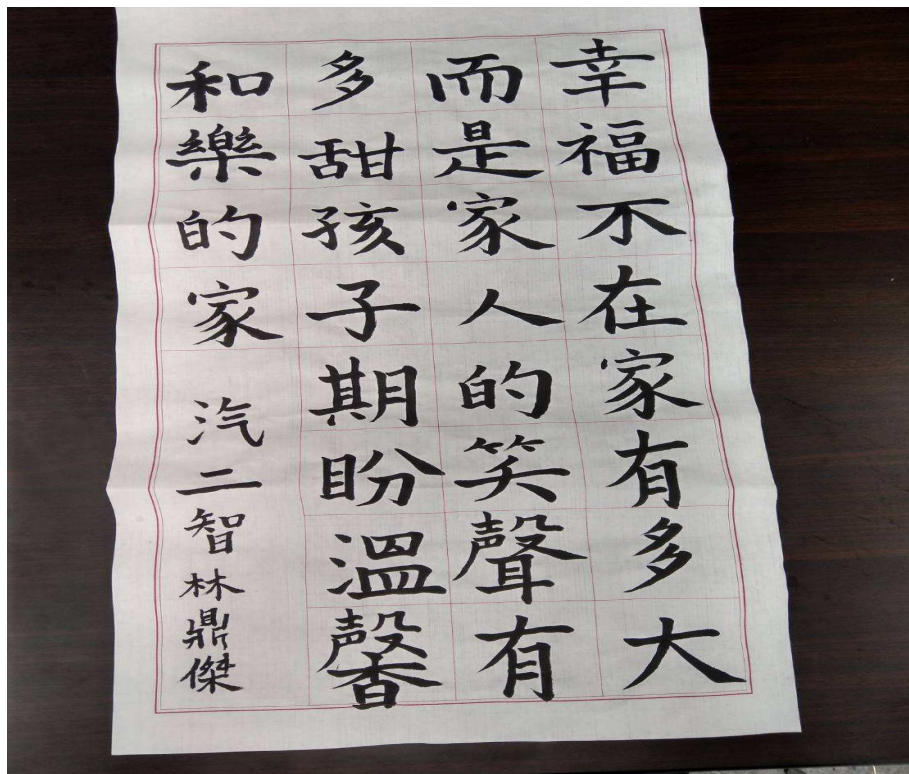 幸福不在家有多大
而是家人的笑聲有
多甜孩子期盼溫馨
和樂的家
汽二智林鼎傑